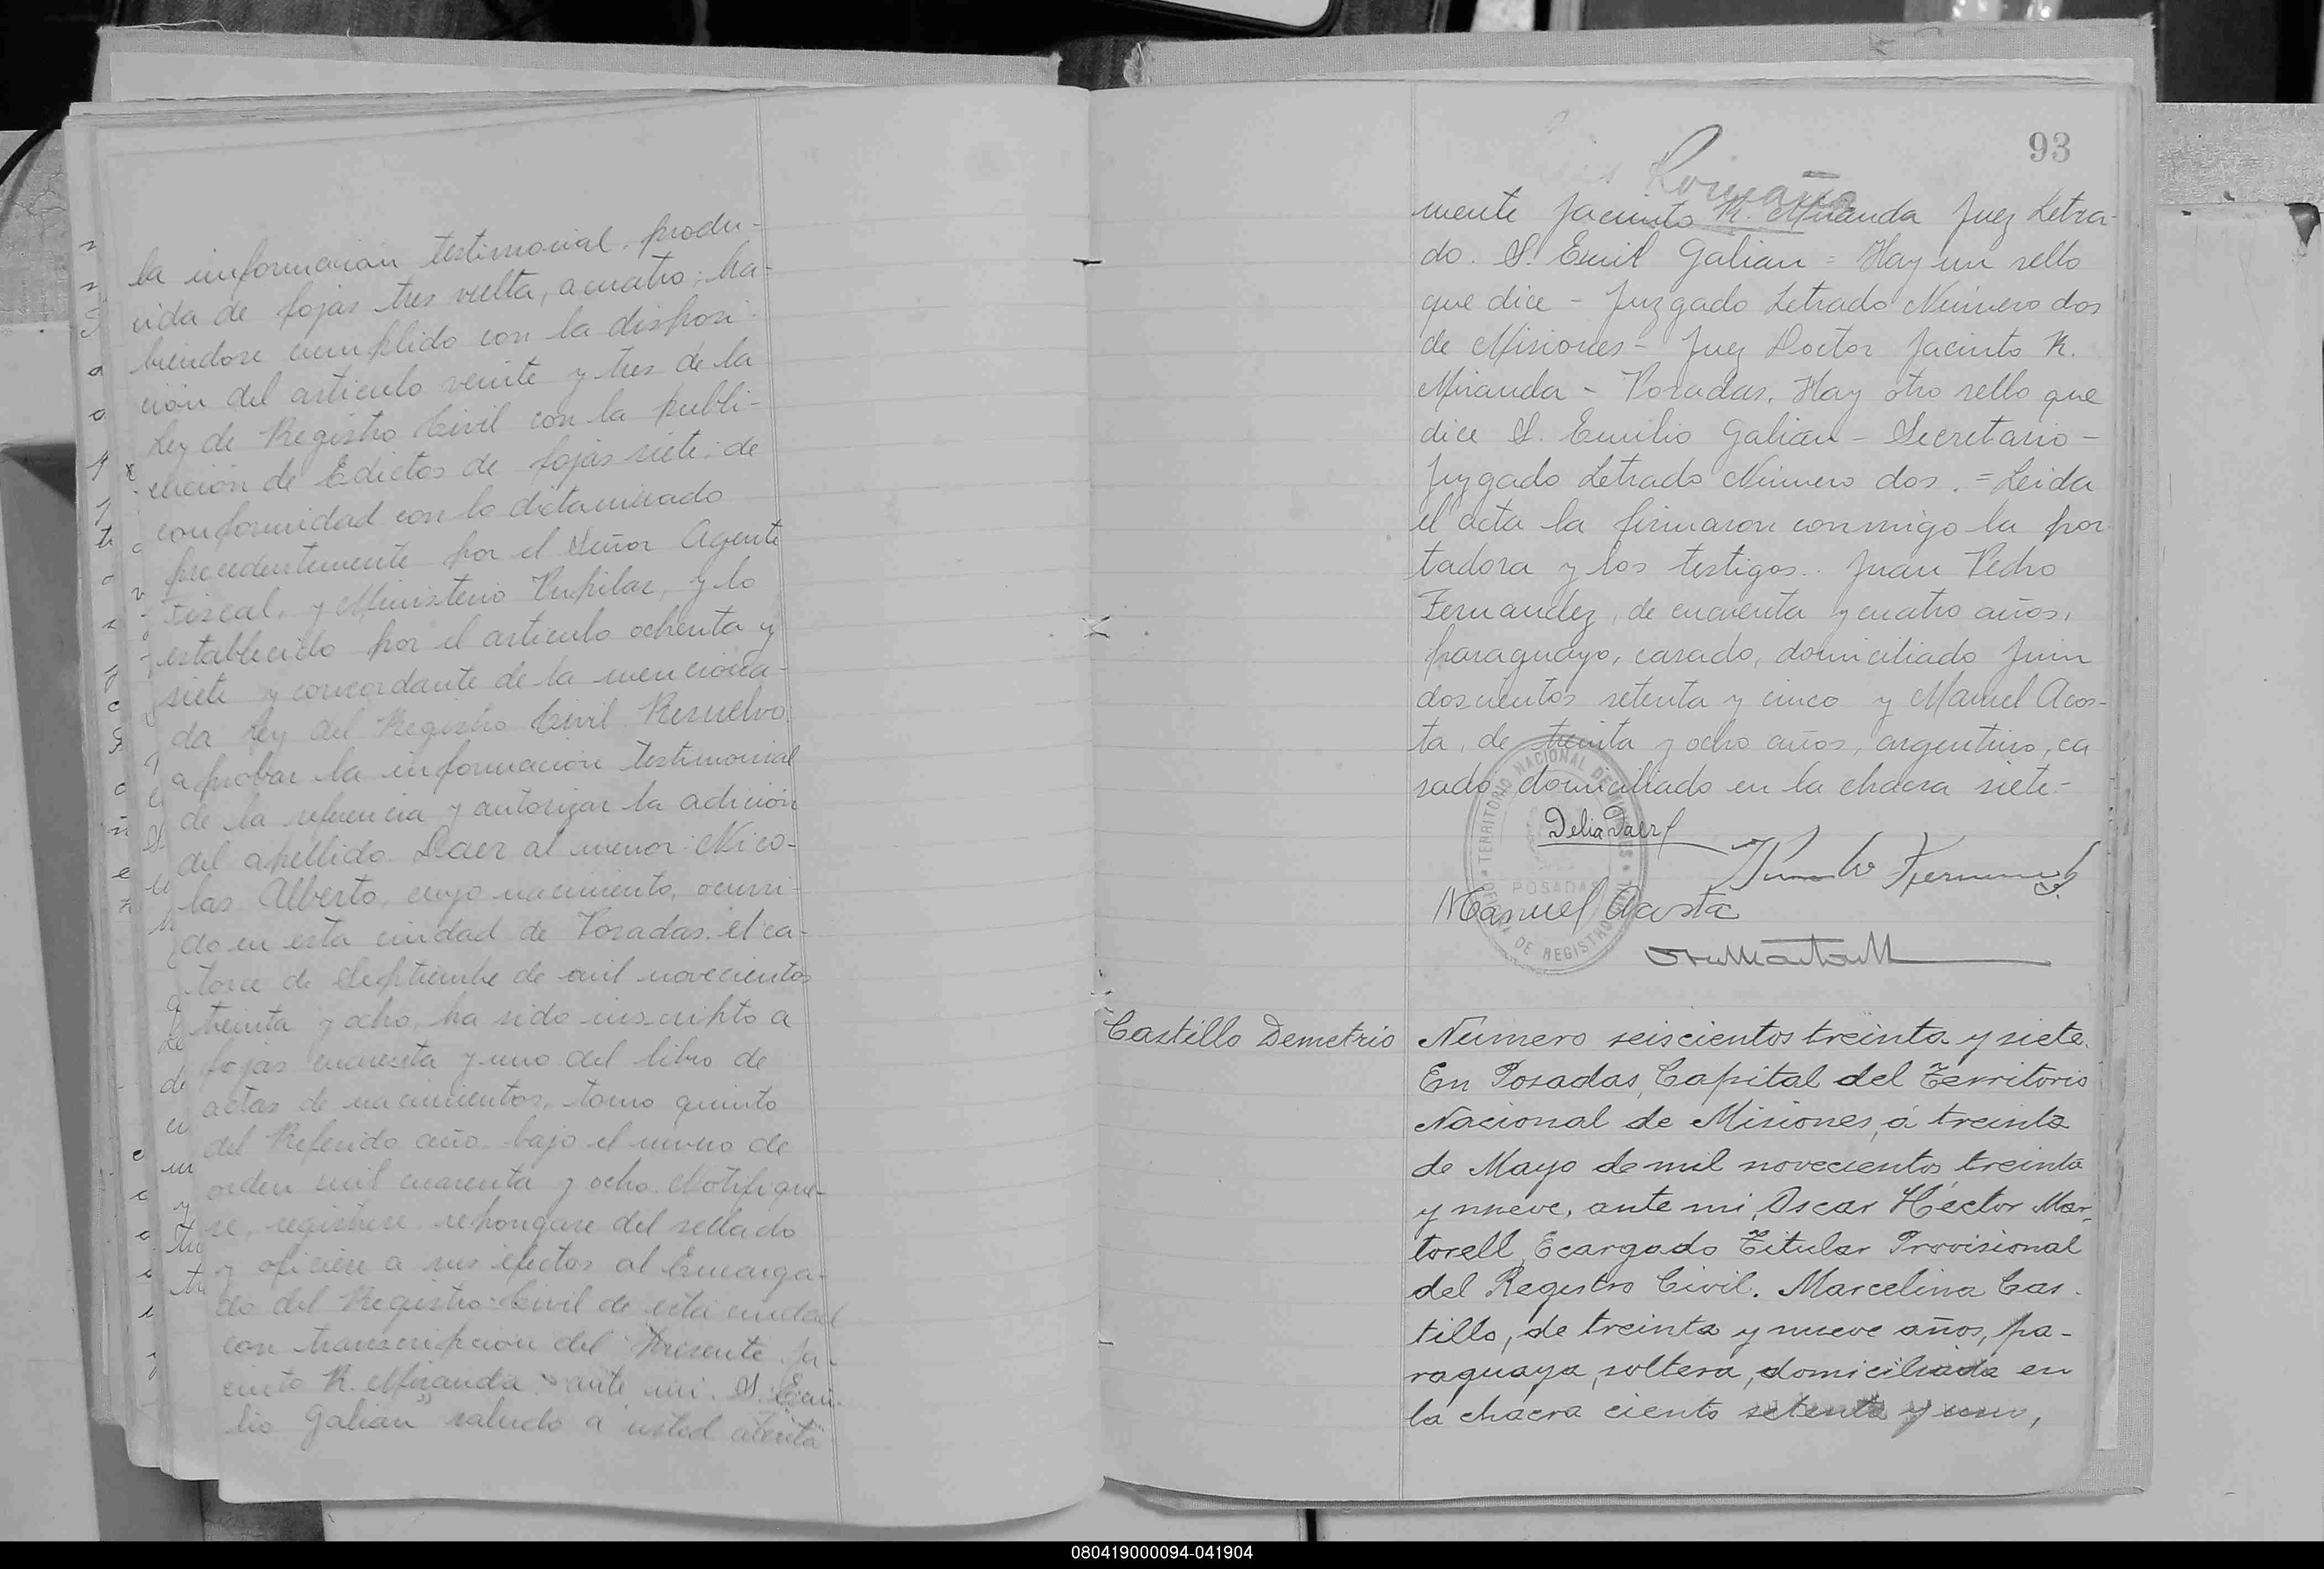 la informacion testimonial, produ-
cida de fojas tres vuelta, a cuatro; ha-
biendose cumplido con la disposi-
ción del articulo veinte y tres de la
Ley de Registro Civil con la publi-
cación de Edictos de fojas siete; de
conformidad con lo dictaminado
precedentemente por el Señor Agente
Fiscal, y Ministerio Pupilar, y lo
establecido por el articulo ochenta y
siete y concordante de la menciona-
da Ley del Registro Civil Resuelvo
aprobar la informacion testimonial
de la referencia y autorizar la adición
del apellido Daer al menor Nico-
las Alberto, cuyo nacimiento, ocurri-
do en esta ciudad de Posadas el ca-
torce de Septiembre de mil novecientos
treinta y ocho, ha sido inscripto a
fojas cuarenta y uno del libro de
actas de nacimientos, tomo quinto
del Referido año bajo el numero de
orden mil cuarenta y ocho. Notifique-
se, registrese, repongase del sellado
y oficiese a sus efectos al Encarga-
do del Registro Civil de esta ciudad
con transcripcion del Presente. Ja-
cinto R. Miranda. ante mi. S. Emi-
lio Galian" saludo a usted atenta
93
Romaña
mente Jacinto R. Miranda Juez Letra-
do. S. Emil Galian = Hay un sello
que dice - Juzgado Letrado Número dos
de Misiones - Juez Doctor Jacinto R.
Miranda - Posadas. Hay otro sello que
dice S. Emilio Galian - Secretario -
Juzgado Letrado Número dos. = Leida
el acta la firmaron conmigo la por
tadora y los testigos. Juan Pedro
Fernandez, de cuarenta y cuatro años,
paraguayo, casado, domiciliado Junin
doscientos setenta y cinco y Manuel Acos-
ta, de treinta y ocho años, argentino, ca
sado domiciliado en la chacra siete-
TERRITORIO NACIONAL DE MISIONES
POSADAS
OFICINA DE REGISTRO CIVIL
Delia Daer
Fernandez
Manuel Acosta
Castillo Demetrio
Número seiscientos treinta y siete.
En Posadas, Capital del Territorio
Nacional de Misiones, á treinta
de Mayo de mil novecientos treinta
y nueve, ante mi, Oscar Héctor Mar-
torell, Ecargado Titular Provisional
del Registro Civil. Marcelina Cas-
tillo, de treinta y nueve años, pa-
raguaya, soltera, domiciliada en
la chacra ciento setenta y uno,
080419000094-041904